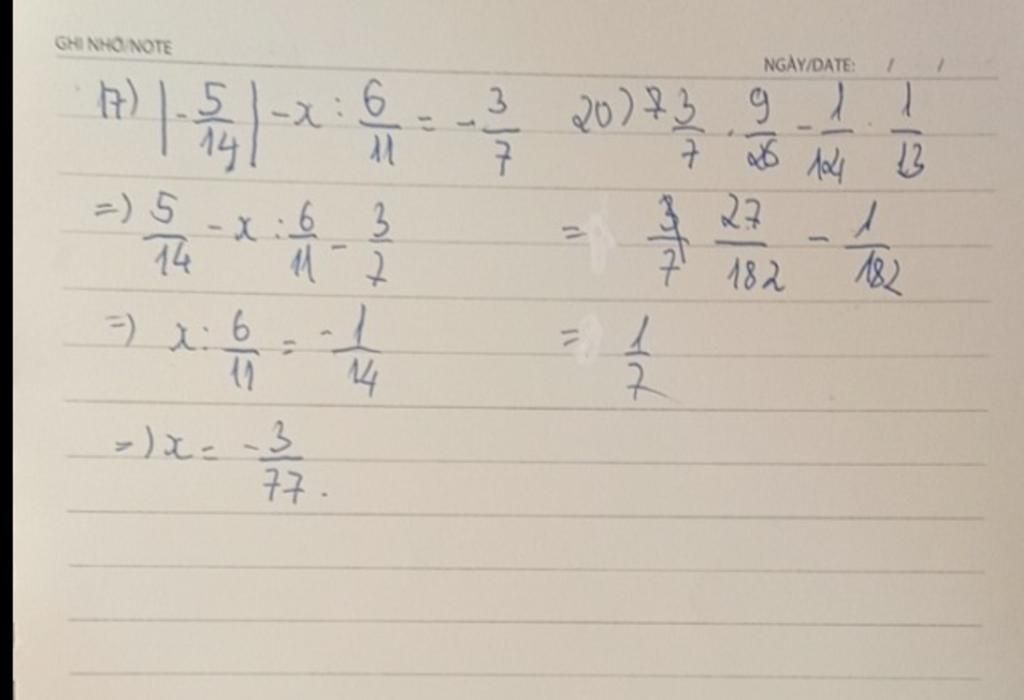 GHI NHỚ/NOTE
NGÀY/DATE: / /
17) |-5/14| - x : 6/11 = -3/7
=) 5/14 - x : 6/11 - 3/7
=) x : 6/11 = -1/14
=) x = -3/77.
20) 3/7 . 9/26 - 1/14 . 1/13
= 3/7 27/182 - 1/182
= 1/7